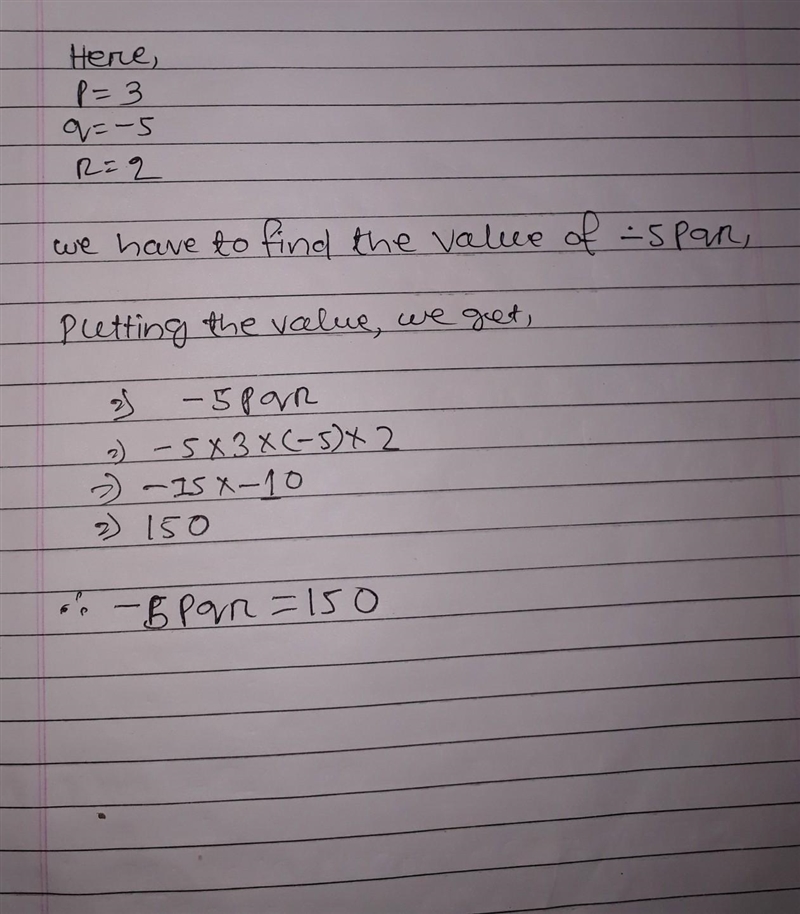 Here,
p = 3
q = -5
r = 2
we have to find the value of -5pqr,
Putting the value, we get,
⇒ -5pqr
⇒ -5 × 3 × (-5) × 2
⇒ -15 × -10
⇒ 150
∴ -5pqr = 150